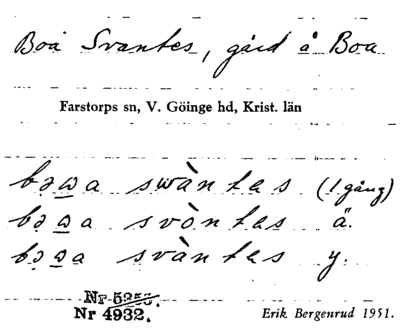 Boa Svantes, gård å Boa
Farstorps sn, V. Göinge hd, Krist. län
bəɷa swàntes (1 gång)
svòntes ä.
svàntes y.
Nr 5255.
Nr 4932.
Erik Bergenrud 1951.